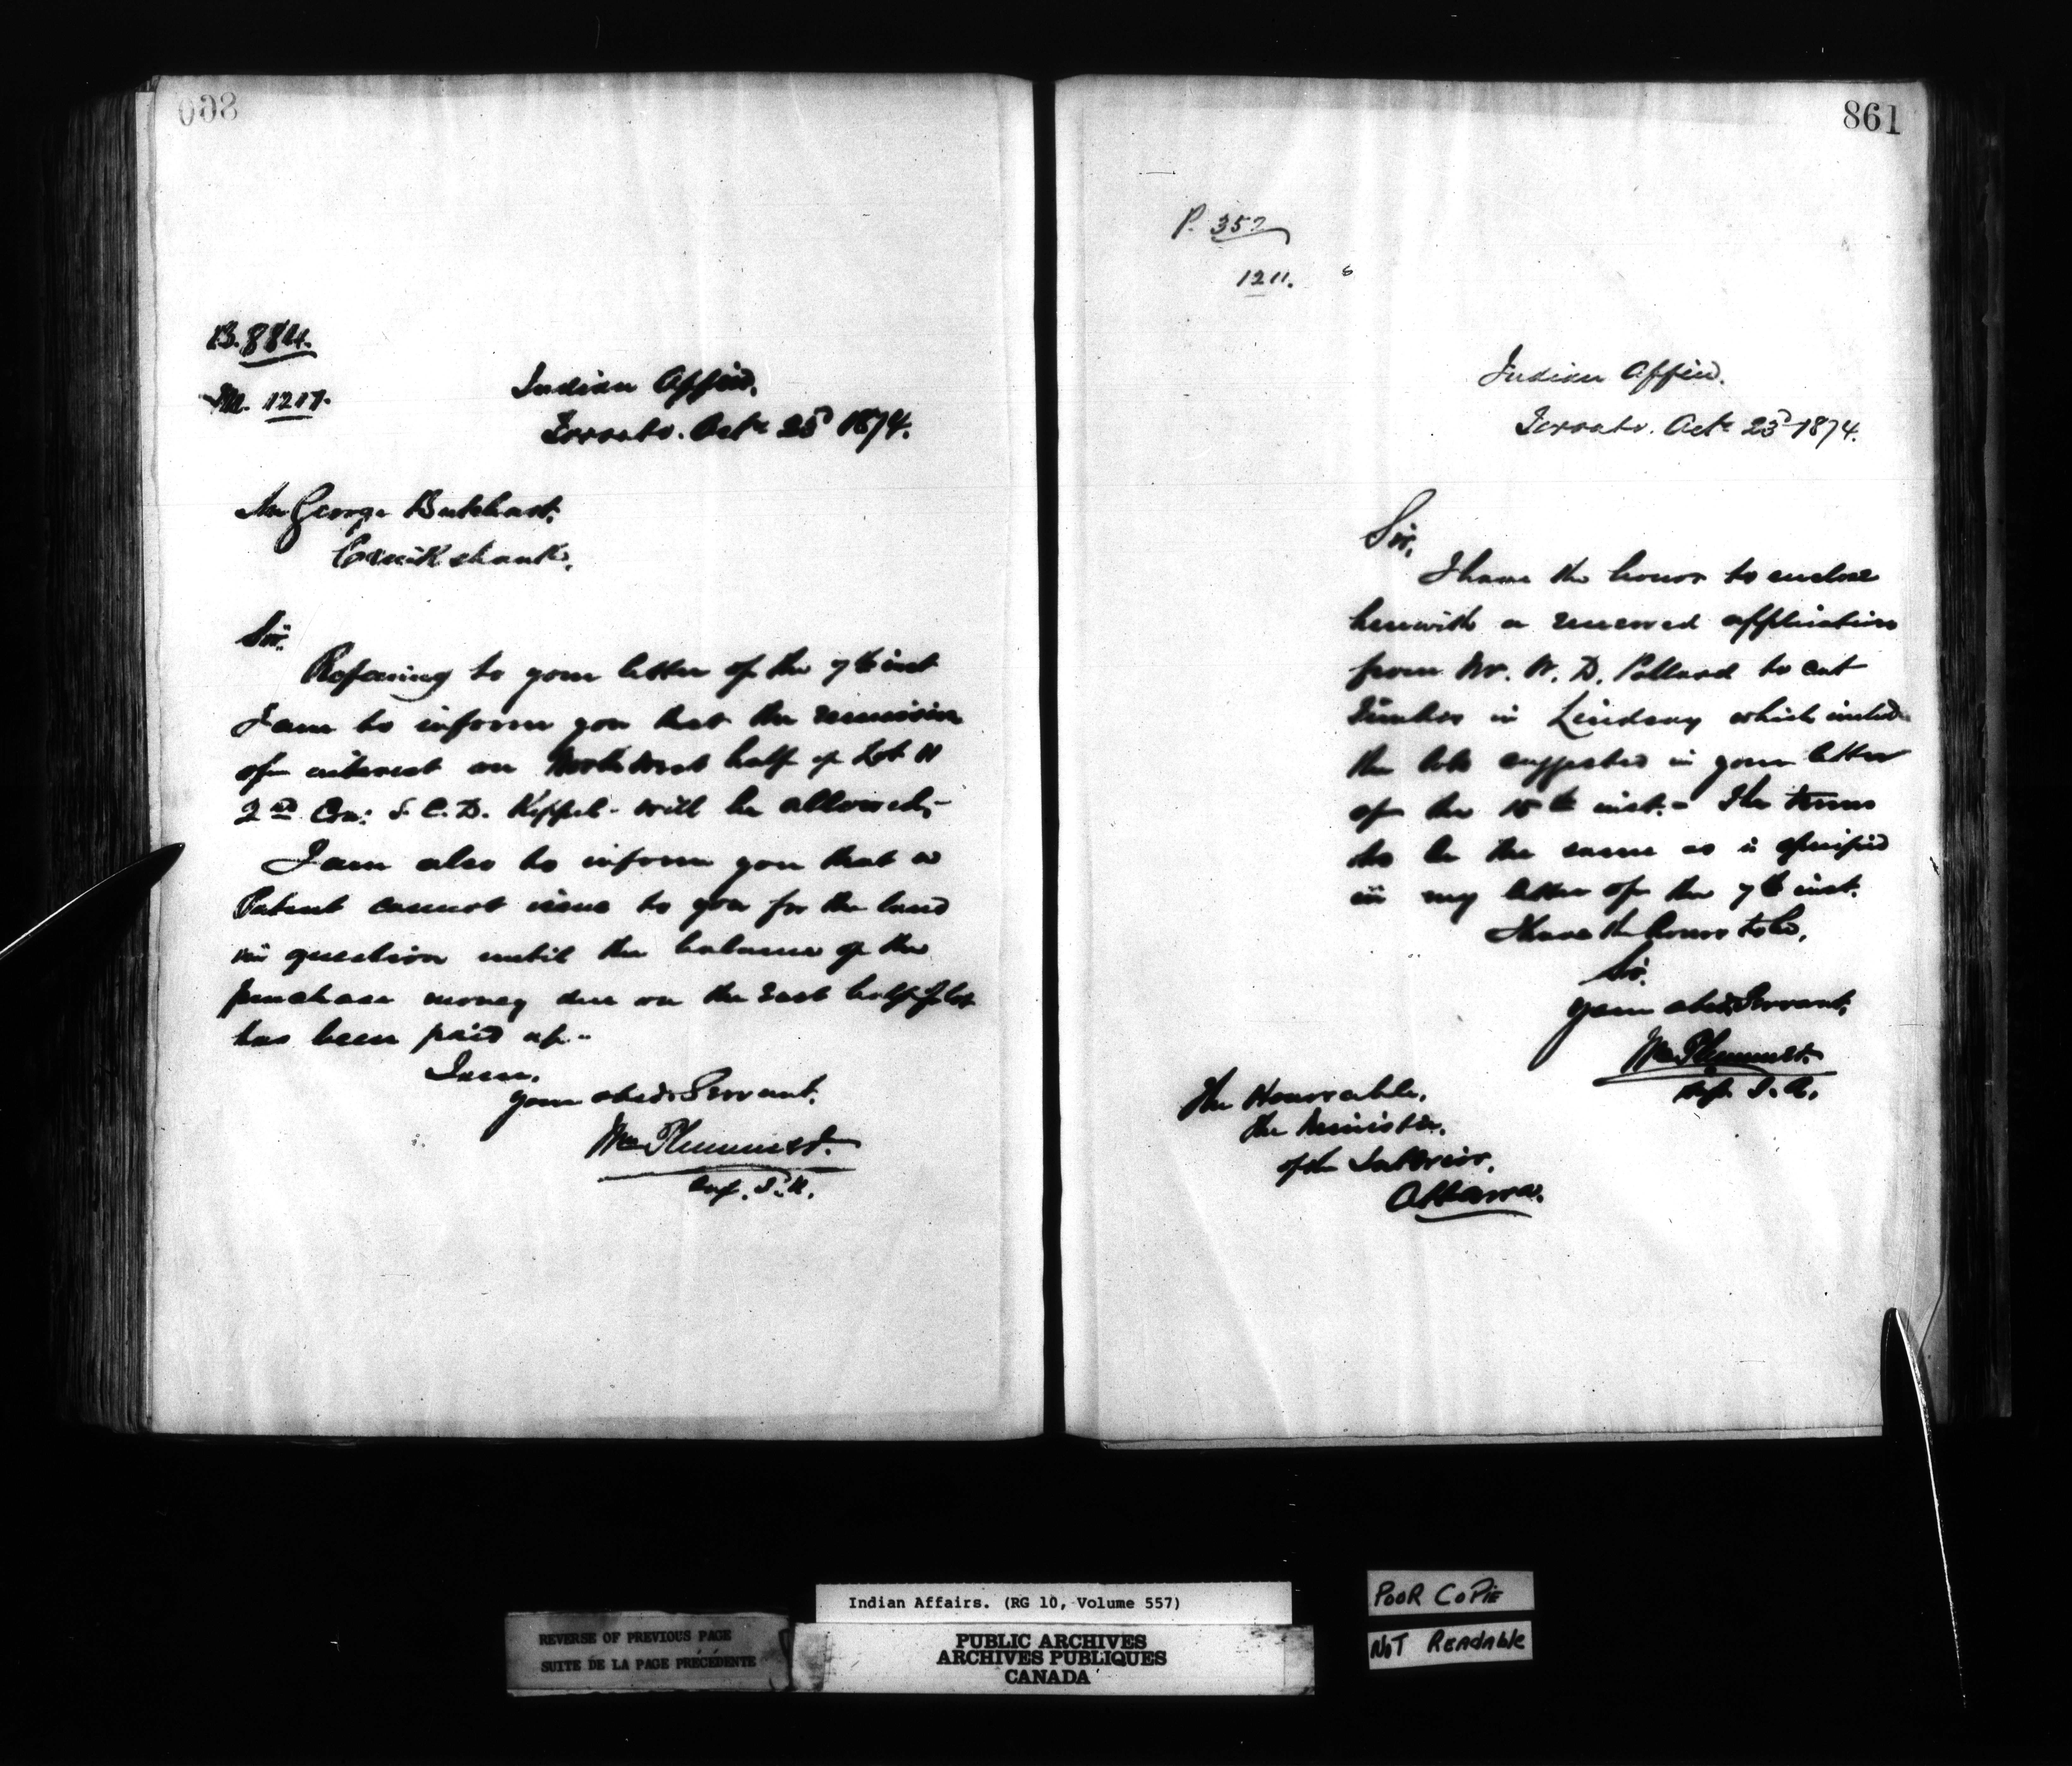 860
B. 884.
M. 1217.
Indian Office.
Toronto. Octr 23d 1874.
Mr George Butchart.
Cruikshank.
Sir.
Refering to your letter of the 7th inst
I am to inform you that the remission
of interest on North West half of Lot 11
2nd Con: S. C. D. Keppel - will be allowed,-
I am also to inform you that a
Patent cannot issue to you for the land
in question until the balance of the
purchase money due on the East half of lot
has been paid up.-
I am.
your obedt Servant.
Wm Plummer.
Supt. I. A.
861
P. 357
1211.
Indian Office.
Toronto. Octr 23d 1874.
Sir,
I have the honor to enclose
herewith a renewed application
from Mr. W. D. Pollard to cut
Timber in Lindsay which includes
the lots suggested in your letter
of the 15th inst. - The terms
to be the same as is specified
in my letter of the 7th inst.
I have the honor to be,
Sir.
your obedt Servant,
Wm Plummer.
Supt. I. A.
The Honorable.
The Minister.
of the Interior.
Ottawa.
Indian Affairs. (RG 10, Volume 557)
REVERSE OF PREVIOUS PAGE
SUITE DE LA PAGE PRÉCÉDENTE
PUBLIC ARCHIVES
ARCHIVES PUBLIQUES
CANADA
POOR COPIE
NOT READABLE